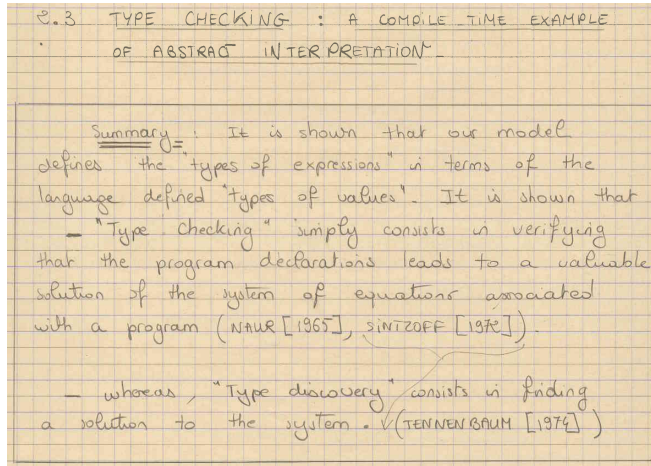 2.3 TYPE CHECKING : A COMPILE TIME EXAMPLE
OF ABSTRACT INTERPRETATION
Summary : It is shown that our model
defines the "types of expressions" in terms of the
language defined "types of values". It is shown that
- "Type checking" simply consists in verifying
that the program declarations leads to a valuable
solution of the system of equations associated
with a program (NAUR [1965], SINTZOFF [1972]).
- whereas, "Type discovery" consists in finding
a solution to the system. (TENNENBAUM [1974])